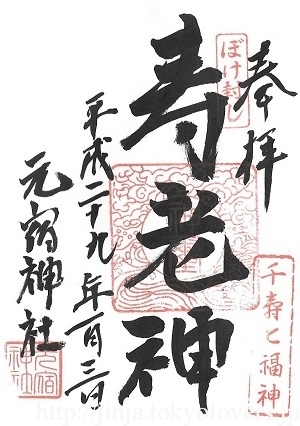 奉拝
ぼけ封じ
寿老神
千寿七福神
平成二十九年一月三日
元宿神社
元宿神社
http://jinja.tokyolovers.jp